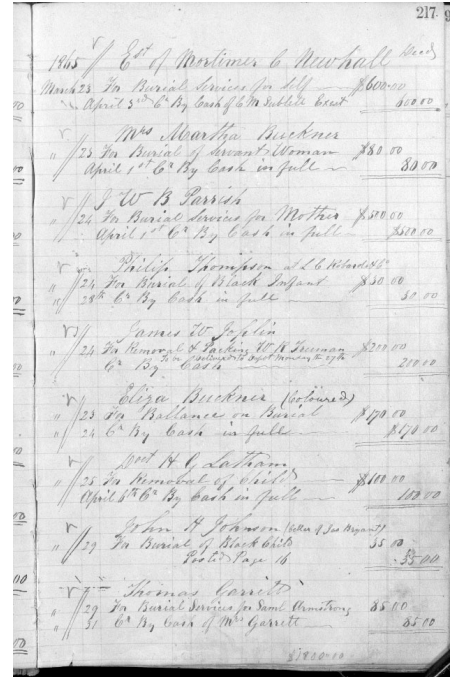 217
1865 // Est of Mortimer C Newhall Decd
March 23 For Burial Services for Self $600.00
April 3rd Cr By Cash of C M Sublett Exect 600.00
Mrs Martha Buckner
" // 23 For Burial of Servant Woman $80.00
April 1st Cr By Cash in full 80.00
J W B Parrish
" // 24 For Burial Services for Mother $500.00
April 1st Cr By Cash in full $500.00
Philip Thompson at L C
" // 24 For Burial of Black Infant $30.00
28th Cr By Cash in full 30.00
James W Joplin
" // 24 For Removal & Packing W R Freeman $200.00
27th
Cr By Cash 200.00
Eliza Buckner (Coloured)
" // 23 For Ballance on Burial $170.00
" 24 Cr By Cash in full $170.00
Doct H G Latham
" // 28 For Removal of Child $100.00
April 6th Cr By Cash in full 100.00
John H Johnson (of Jas Bryant)
" // 29 For Burial of Black Child 35.00
Posted Page 16 35.00
Thomas Garrett
" // 29 For Burial Services for Saml Armstrong 85.00
" // 31 Cr By Cash of Mrs Garrett 85.00
$1800.00